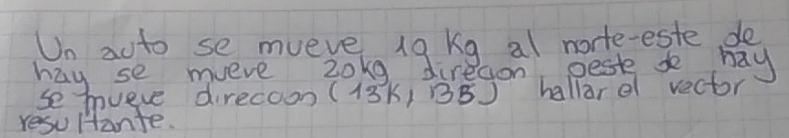 Un auto se mueve 19 Kg al norte-este de
hay se mueve 20kg direcion oeste de hay
se mueve direccion (13K, 135) hallar el vector
resultante.